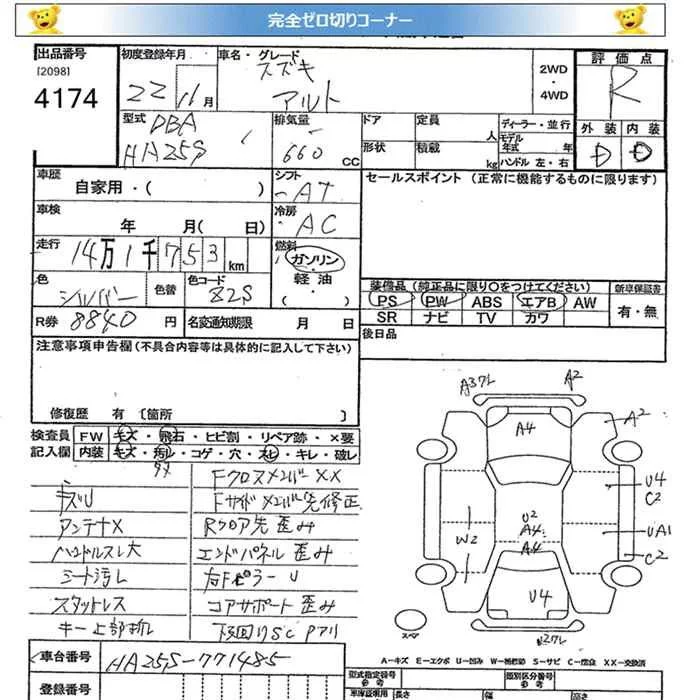 完全ゼロ切りコーナー
出品番号
[2098]
4174
初度登録年月
22 年 11 月
車名・グレード
スズキ
アルト
2WD
・
4WD
評価点
R
外装 内装
D D
型式
DBA
HA25S
排気量
660 CC
ドア
定員
人
形状
積載
kg
ディーラー・並行
モデル
年式 年
ハンドル 左・右
車歴
自家用・( )
シフト
AT
セールスポイント (正常に機能するものに限ります)
車検
年 月( 日)
冷房
AC
走行
14万1千753 km
燃料
ガソリン
・
軽油
色
シルバー
色替
色コード
Z2S
装備品 (純正品に限り○をつけてください)
新車保証書
PS PW ABS エアB AW
SR ナビ TV カワ
有・無
R券 8840 円
名変通知期限 月 日
後日品
注意事項申告欄(不具合内容等は具体的に記入して下さい)
修復歴 有 〔箇所 〕
検査員
記入欄
FW キズ・飛石・ヒビ割・リペア跡・×要
内装 キズ・汚レ・コゲ・穴・スレ・キレ・破レ
Fクロスメンバー××
キズU
Fサイドメンバー先修正
アンテナX
Rフロア先歪み
ハンドルスレ大
エンドパネル歪み
シート汚レ
右Fピラー U
スタットレス
コアサポート歪み
キー上部折レ
下回りSC Pアリ
A3フレ
A2
A4
A2
U4
C2
U2
A4
A4
W2
UA1
C2
U4
スペア
車台番号
HA25S-771485
登録番号
A-キズ E-エクボ U-凹み W-補修跡 S-サビ C-腐食 XX-交換済
型式指定番号
参考
類別区分番号
参考
車庫証明用
長さ
幅
高さ